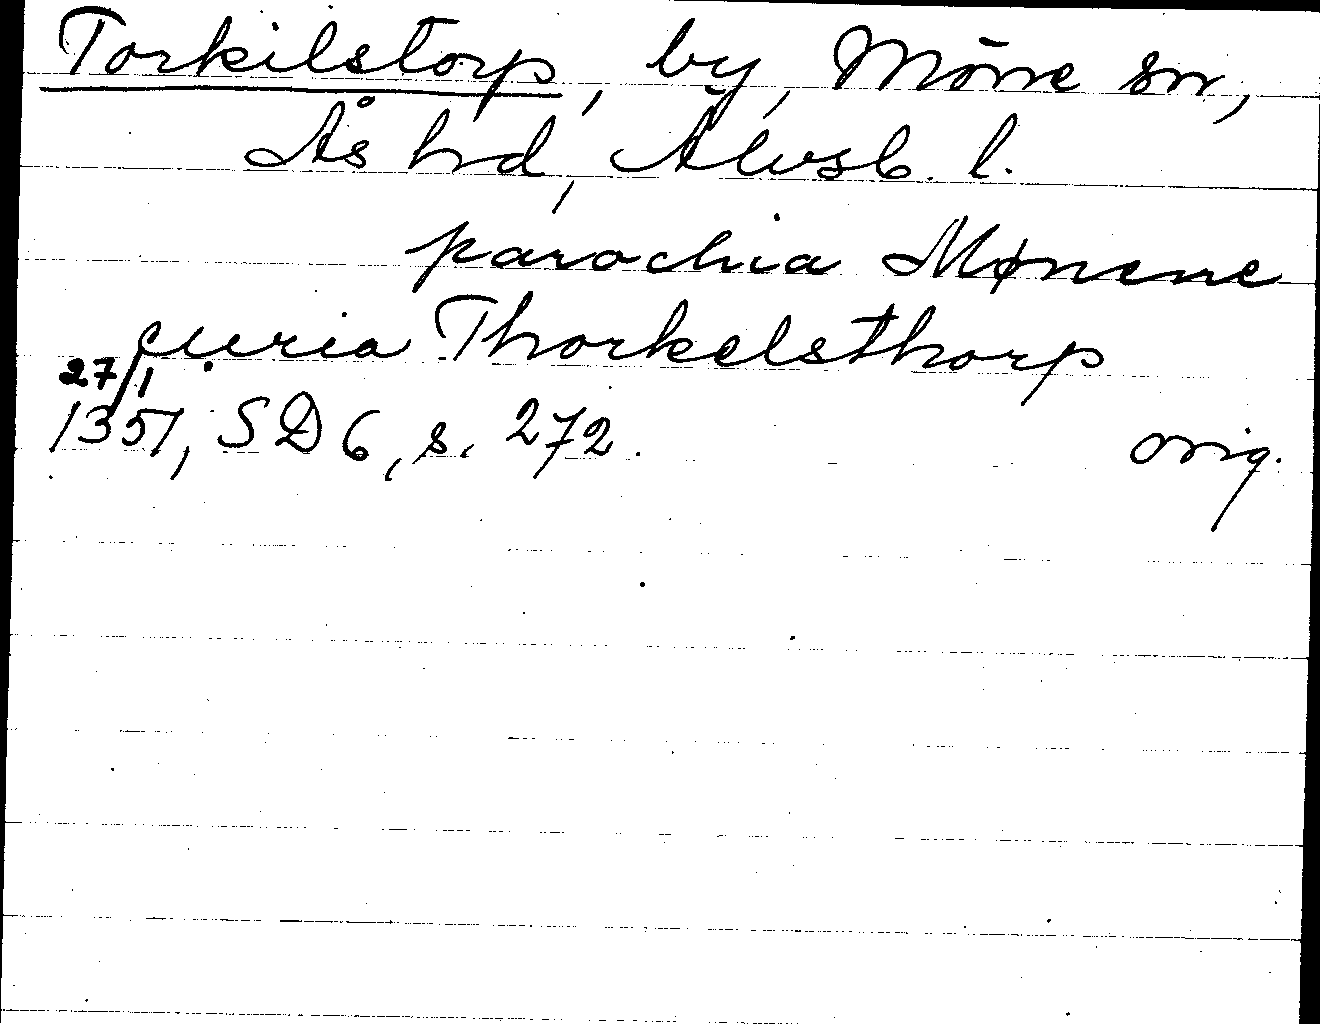 Torkilstorp, by, Möne sn,
Ås hd, Älvsb. l.
parochia Mønene
curia Thorkelsthorp
27/1
1351, SD 6, s. 272. orig.